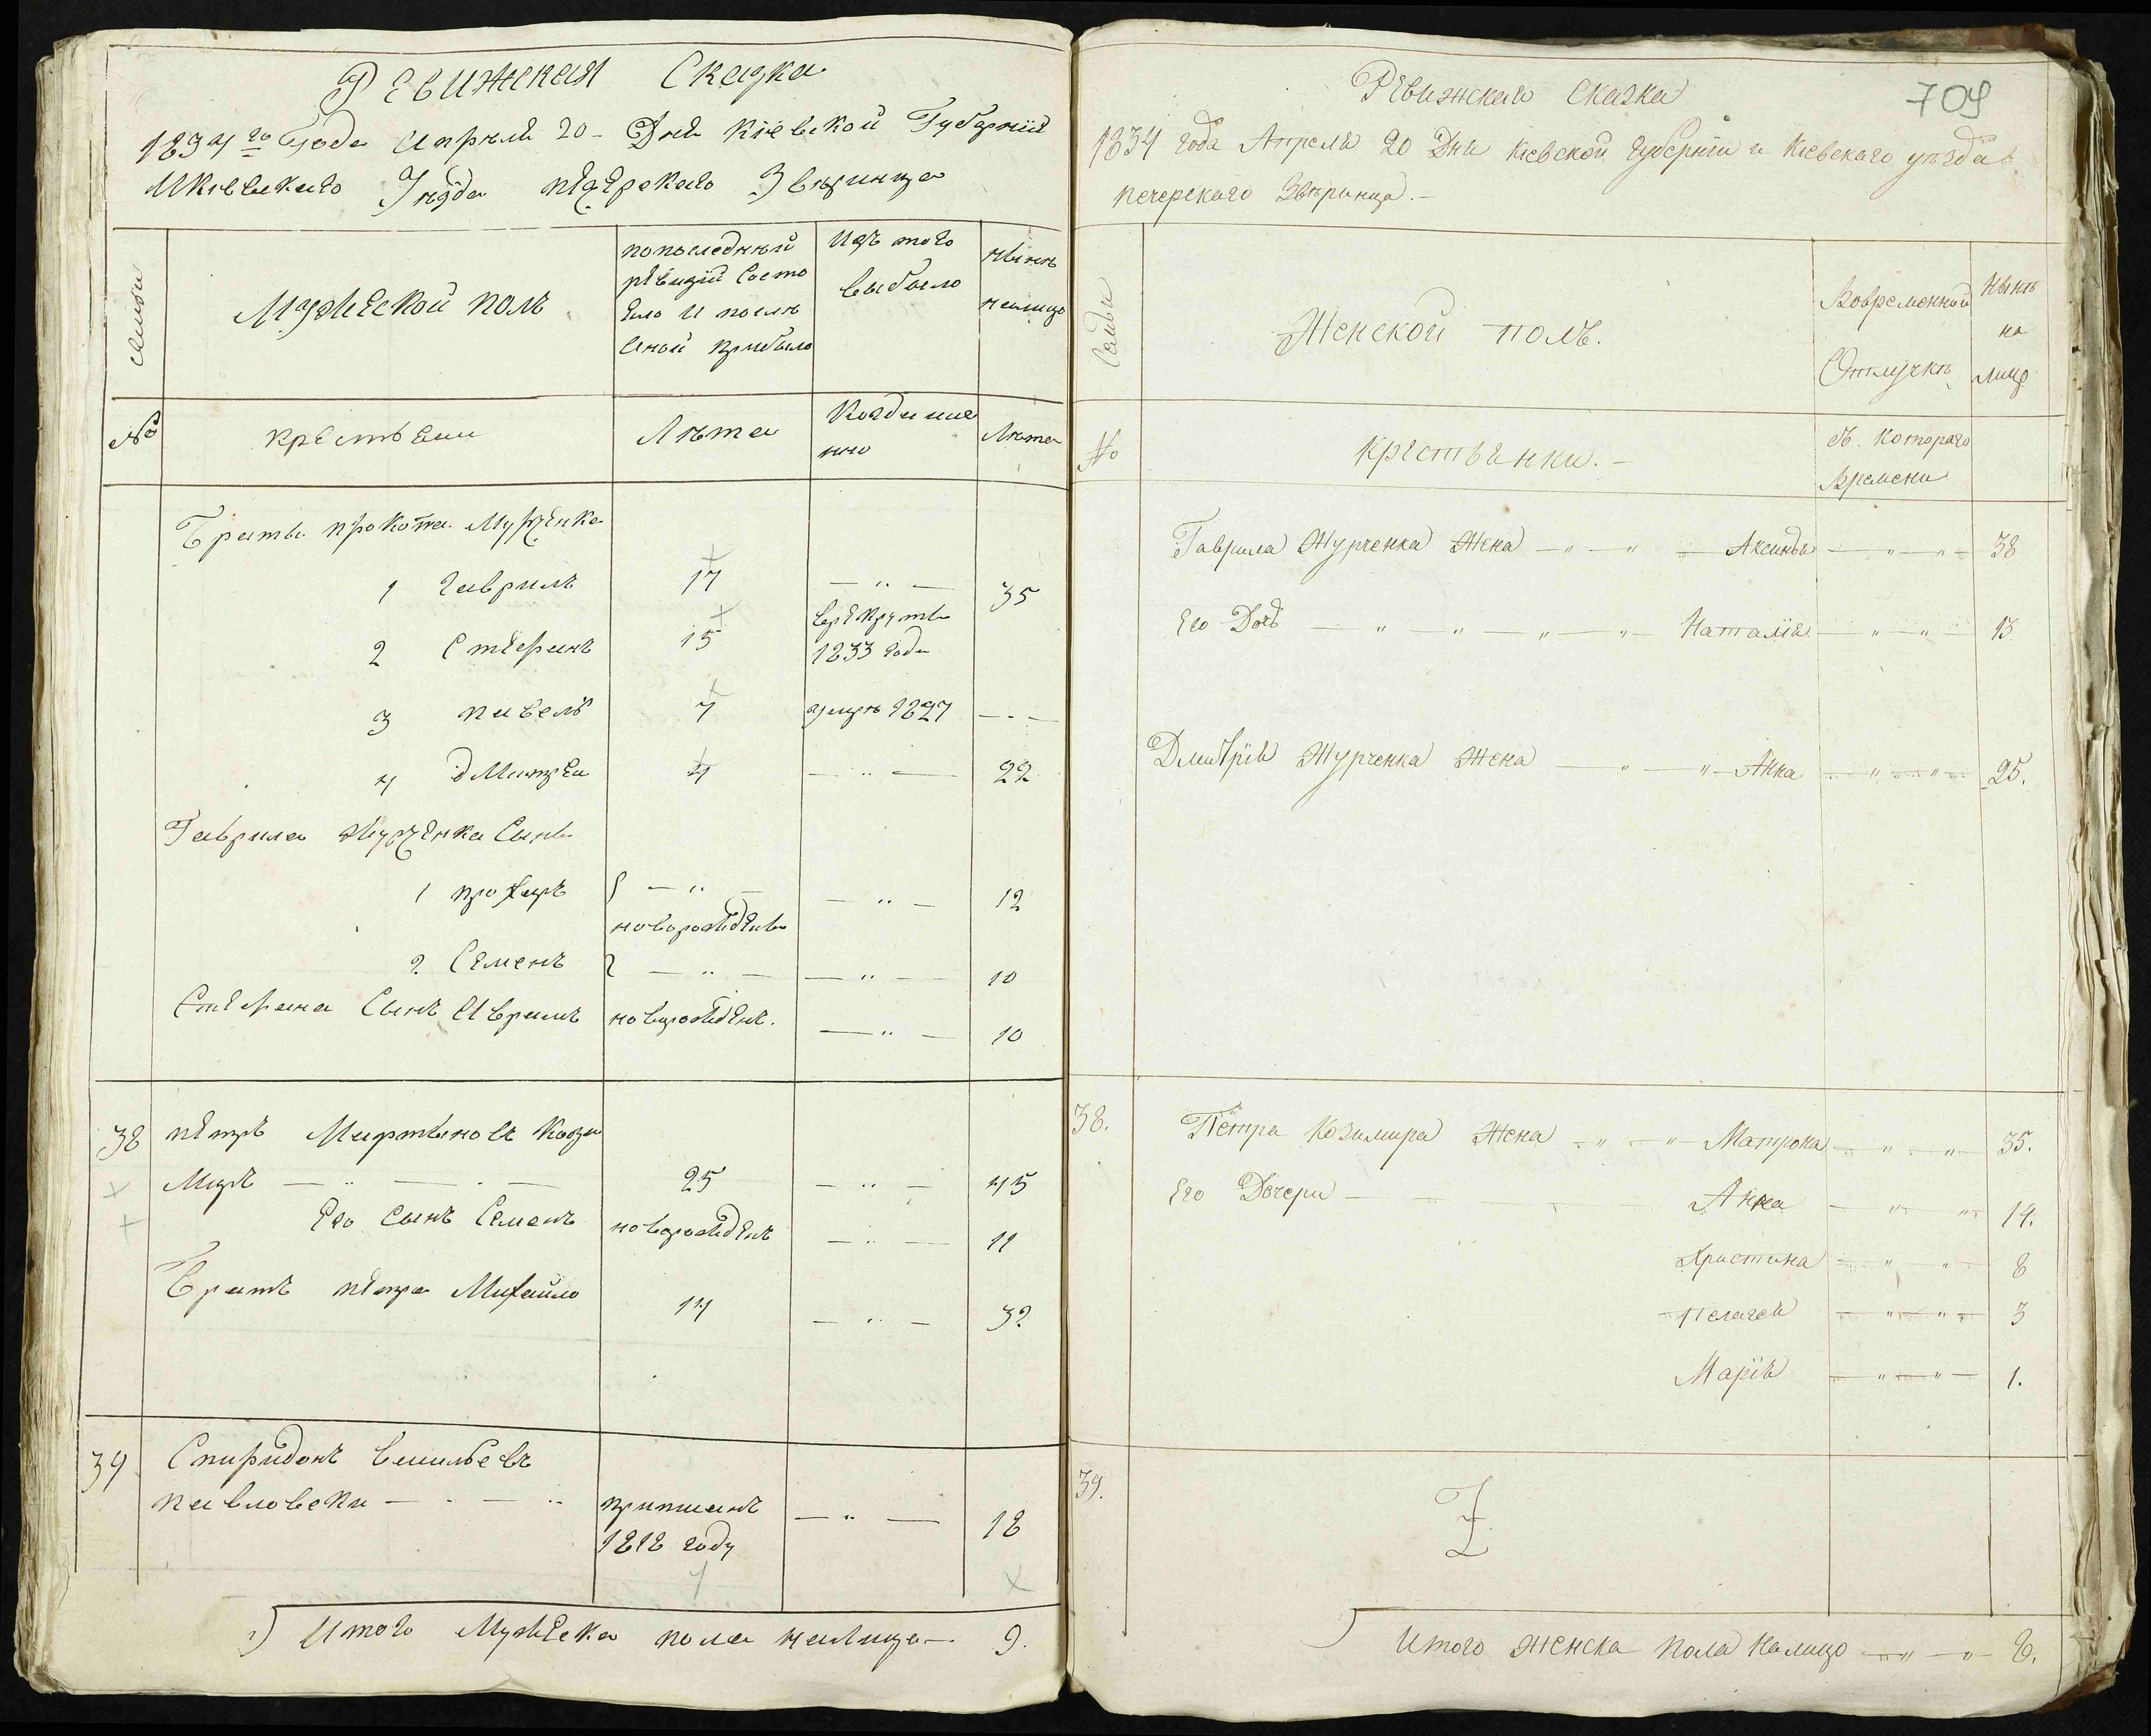 Ревижская Сказка
1834го Года Апреля 20 Дня Кіевской Губерніи
И Кіевскаго Уѣзда печерскаго Звѣринца
семьи
Мужеской полъ
по последнѣй
ревизіи Состо
Ело И после
Оной прибыло
Изъ того
выбыло
нынѣ
налицо
№
крестьени
Лѣта
Когда име
нно
Лѣта
Браты прокопа Журченка
1 Гаврилъ 17 — " — 35
2 Стефанъ 15 врекруты
1833 года
3 павелъ 7 умре 1827 — " —
4 дмитрей 4 — " — 22
Гаврила Журченка Сыны
1 прохоръ — " — — " — 12
новорожденые
2 Семенъ — " — — " — 10
Стефана Сынъ Аврамъ новорожденъ. — " — 10
38 петръ Мартыновъ Кози
Миръ — " — 25 — " — 45
Его Сынъ Семенъ новорожденъ — " — 11
Братъ петра Михайло 14 — " — 32
39 Спиридонъ васильевъ
павловски — " — приписанъ — " — 18
1818 году
Итого Мужеска пола налице — 9.
709
Ревижская Сказка
1834 года Апреля 20 Дня Кіевской Губерніи и Кіевскаго уѣзда
печерскаго Звѣринца. —
Семьи
Женской полъ.
Вовременной
Отлучкѣ
Нынѣ
на
лицо
№
Крестьянки. —
съ котораго
Времени
Гаврила Журченка Жена — " — " — Аксинья — " — " — 38
Его Дочь — " — " — " — " — Наталія — " — " — 13.
Дмитрія Журченка Жена — " — " — Анна — " — " — 25.
38. Петра Козимира Жена — " — " — Матрона — " — " — 35.
Его Дочери — Анна — " — " — 14.
Христина — " — " — 8
Пелагея — " — " — 3
Марія — " — " — 1.
39.
Итого женска Пола Налицо — " — " — 8.